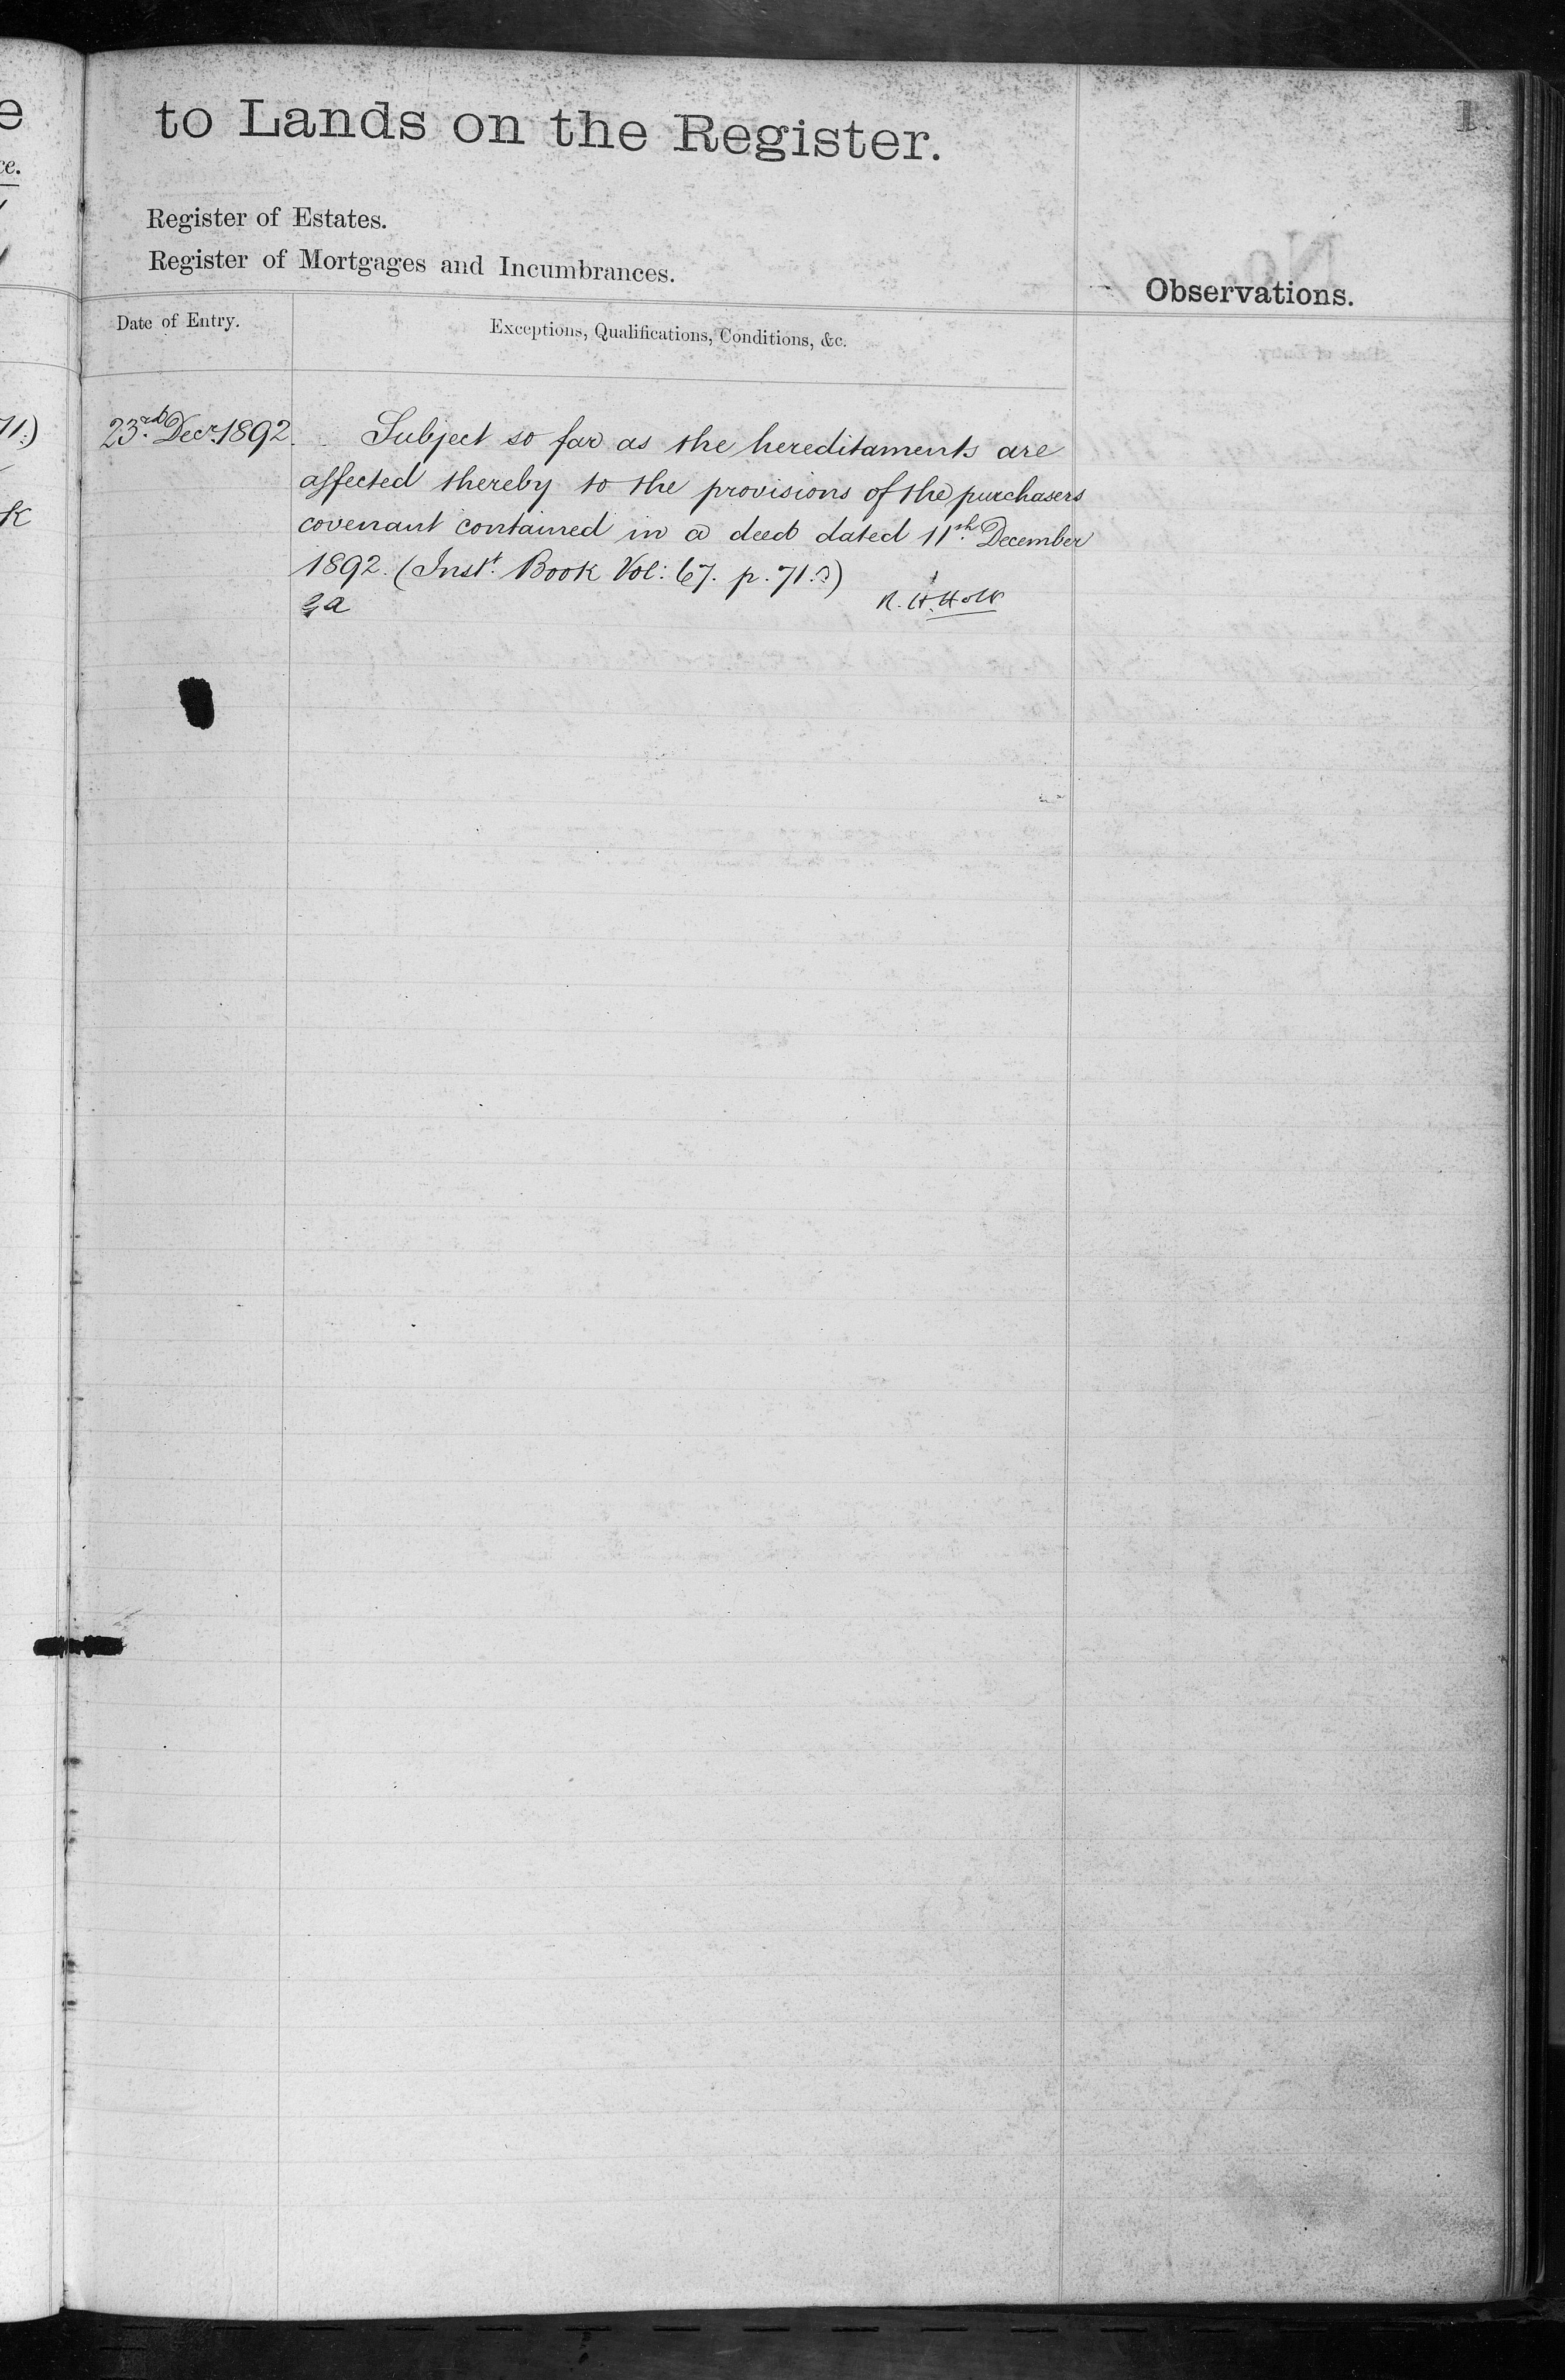 to Lands on the Register.
1.
Register of Estates.
Register of Mortgages and Incumbrances.
Observations.
Date of Entry.
Exceptions, Qualifications, Conditions, &c.
23.rd Decr. 1892.
Subject so far as the hereditaments are
affected thereby to the provisions of the purchasers
covenant contained in a deed dated 11th. December
1892. (Inst.t Book Vol: 67. p. 71.)
R. H. Holt